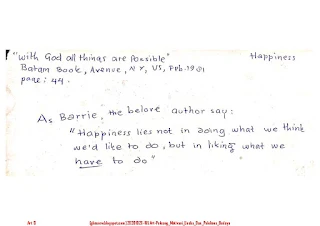 "With God all things are Possible"
Happiness
Batam Book, Avenue, NY, US, Feb. 1981
page: 44.
As Barrie, the belove author say:
"Happiness lies not in doing what we think
we'd like to do, but in liking what we
have to do"